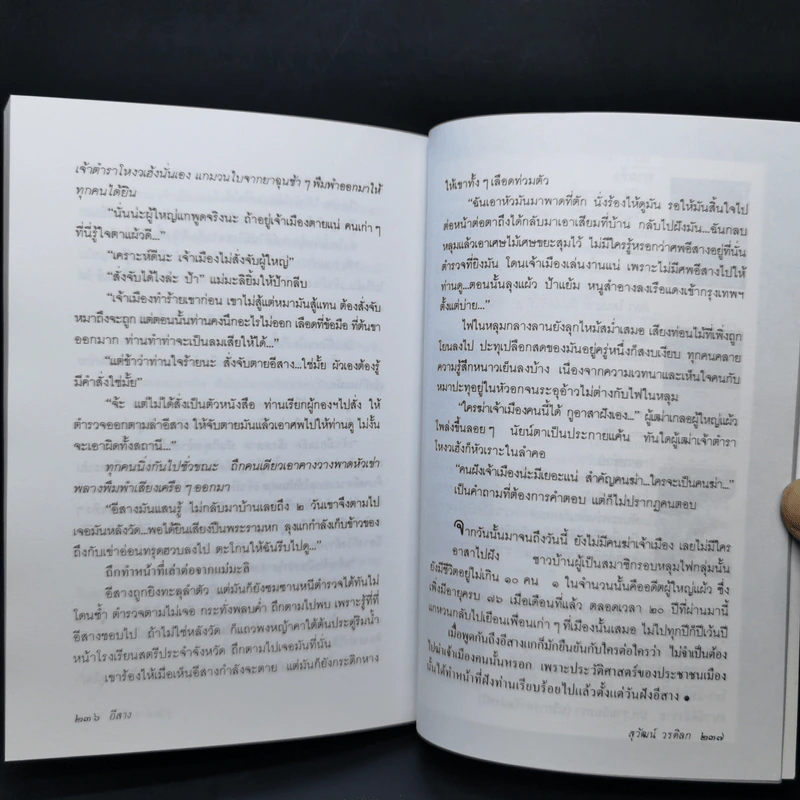 เจ้าตำราโหงวเฮ้งนั่นเอง แกมวนใบจากยาฉุนช้า ๆ พึมพำออกมาให้
ทุกคนได้ยิน
“นั่นน่ะผู้ใหญ่แกพูดจริงนะ ถ้าอยู่เจ้าเมืองตายแน่ คนเก่า ๆ
ที่นี่รู้ใจตาแผ้วดี...”
“เคราะห์ดีนะ เจ้าเมืองไม่สั่งจับผู้ใหญ่”
“สั่งจับได้ไงล่ะ ป้า” แม่มะลิยิ้มให้ป้ากลีบ
“เจ้าเมืองทำร้ายเขาก่อน เขาไม่สู้แต่หมามันสู้แทน ต้องสั่งจับ
หมาถึงจะถูก แต่ตอนนั้นท่านคงนึกอะไรไม่ออก เลือดที่ข้อมือ ที่ต้นขา
ออกมาก ท่านทำท่าจะเป็นลมเสียให้ได้...”
“แต่ข้าว่าท่านใจร้ายนะ สั่งจับตายอีสาง...ใช่มั้ย ผัวเอ็งต้องรู้
มีคำสั่งใช่มั้ย”
“จ้ะ แต่ไม่ได้สั่งเป็นตัวหนังสือ ท่านเรียกผู้กองฯไปสั่ง ให้
ตำรวจออกตามล่าอีสาง ให้จับตายมันแล้วเอาศพไปให้ท่านดู ไม่งั้น
จะเอาผิดทั้งสถานี...”
ทุกคนนิ่งกันไปชั่วขณะ ถึกคนเดียวเอาคางวางพาดหัวเข่า
พลางพึมพำเสียงเครือ ๆ ออกมา
“อีสางมันแสนรู้ ไม่กลับมาบ้านเลยถึง ๒ วันเขาจึงตามไป
เจอมันหลังวัด...พอได้ยินเสียงปืนพระรามหก ลุงแกกำลังเก็บข้าวของ
ถึงกับเข่าอ่อนทรุดฮวบลงไป ตะโกนให้ฉันรีบไปดู...”
ถึกทำหน้าที่เล่าต่อจากแม่มะลิ
อีสางถูกยิงทะลุลำตัว แต่มันก็ยังซมซานหนีตำรวจได้ทันไม่
โดนซ้ำ ตำรวจตามไม่เจอ กระทั่งพลบค่ำ ถึกตามไปพบ เพราะรู้ที่ที่
อีสางชอบไป ถ้าไม่ใช่หลังวัด ก็แถวพงหญ้าคาใต้ต้นประดู่ริมน้ำ
หน้าโรงเรียนสตรีประจำจังหวัด ถึกตามไปเจอมันที่นั่น
เขาร้องไห้เมื่อเห็นอีสางกำลังจะตาย แต่มันก็ยังกระดิกหาง
๒๓๖ อีสาง
ให้เขาทั้ง ๆ เลือดท่วมตัว
“ฉันเอาหัวมันมาพาดที่ตัก นั่งร้องไห้ดูมัน รอให้มันสิ้นใจไป
ต่อหน้าต่อตาถึงได้กลับมาเอาเสียมที่บ้าน กลับไปฝังมัน...ฉันกลบ
หลุมแล้วเอาเศษไม้เศษขยะสุมไว้ ไม่มีใครรู้หรอกว่าศพอีสางอยู่ที่นั่น
ตำรวจที่ยิงมัน โดนเจ้าเมืองเล่นงานแน่ เพราะไม่มีศพอีสางไปให้
ท่านดู...ตอนนั้นลุงแผ้ว ป้าแย้ม หนูสำอางลงเรือแดงเข้ากรุงเทพฯ
ตั้งแต่บ่าย...”
ไฟในหลุมกลางลานยังลุกไหม้สม่ำเสมอ เสียงท่อนไม้ที่เพิ่งถูก
โยนลงไป ปะทุเปลือกสดของมันอยู่ครู่หนึ่งก็สงบเงียบ ทุกคนคลาย
ความรู้สึกหนาวเย็นลงบ้าง เนื่องจากความเวทนาและเห็นใจคนกับ
หมาปะทุอยู่ในหัวอกจนระอุอ้าวไม่ต่างกับไฟในหลุม
“ใครฆ่าเจ้าเมืองคนนี้ได้ กูอาสาฝังเอง...” ผู้เฒ่าเกลอผู้ใหญ่แผ้ว
โพล่งขึ้นลอยๆ นัยน์ตาเป็นประกายแค้น ทันใดผู้เฒ่าเจ้าตำรา
โหงวเฮ้งก็หัวเราะในลำคอ
“คนฝังเจ้าเมืองน่ะมีเยอะแน่ สำคัญคนฆ่า...ใครจะเป็นคนฆ่า...”
เป็นคำถามที่ต้องการคำตอบ แต่ก็ไม่ปรากฏคนตอบ
จากวันนั้นมาจนถึงวันนี้ ยังไม่มีคนฆ่าเจ้าเมือง เลยไม่มีใคร
อาสาไปฝัง ชาวบ้านผู้เป็นสมาชิกรอบหลุมไฟกลุ่มนั้น
ยังมีชีวิตอยู่ไม่เกิน ๑๐ คน ๑ ในจำนวนนั้นคืออดีตผู้ใหญ่แผ้ว ซึ่ง
เพิ่งมีอายุครบ ๗๖ เมื่อเดือนที่แล้ว ตลอดเวลา ๒๐ ปีที่ผ่านมานี้
แกหวนกลับไปเยือนเพื่อนเก่า ๆ ที่เมืองนั้นเสมอ ไม่ไปทุกปีก็ปีเว้นปี
เมื่อพูดกันถึงอีสางแกก็มักยืนยันกับใครต่อใครว่า ไม่จำเป็นต้อง
ไปฆ่าเจ้าเมืองคนนั้นหรอก เพราะประวัติศาสตร์ของประชาชนเมือง
นั้นได้ทำหน้าที่ฝังท่านเรียบร้อยไปแล้วตั้งแต่วันฝังอีสาง
สุวัฒน์ วรดิลก ๒๓๗